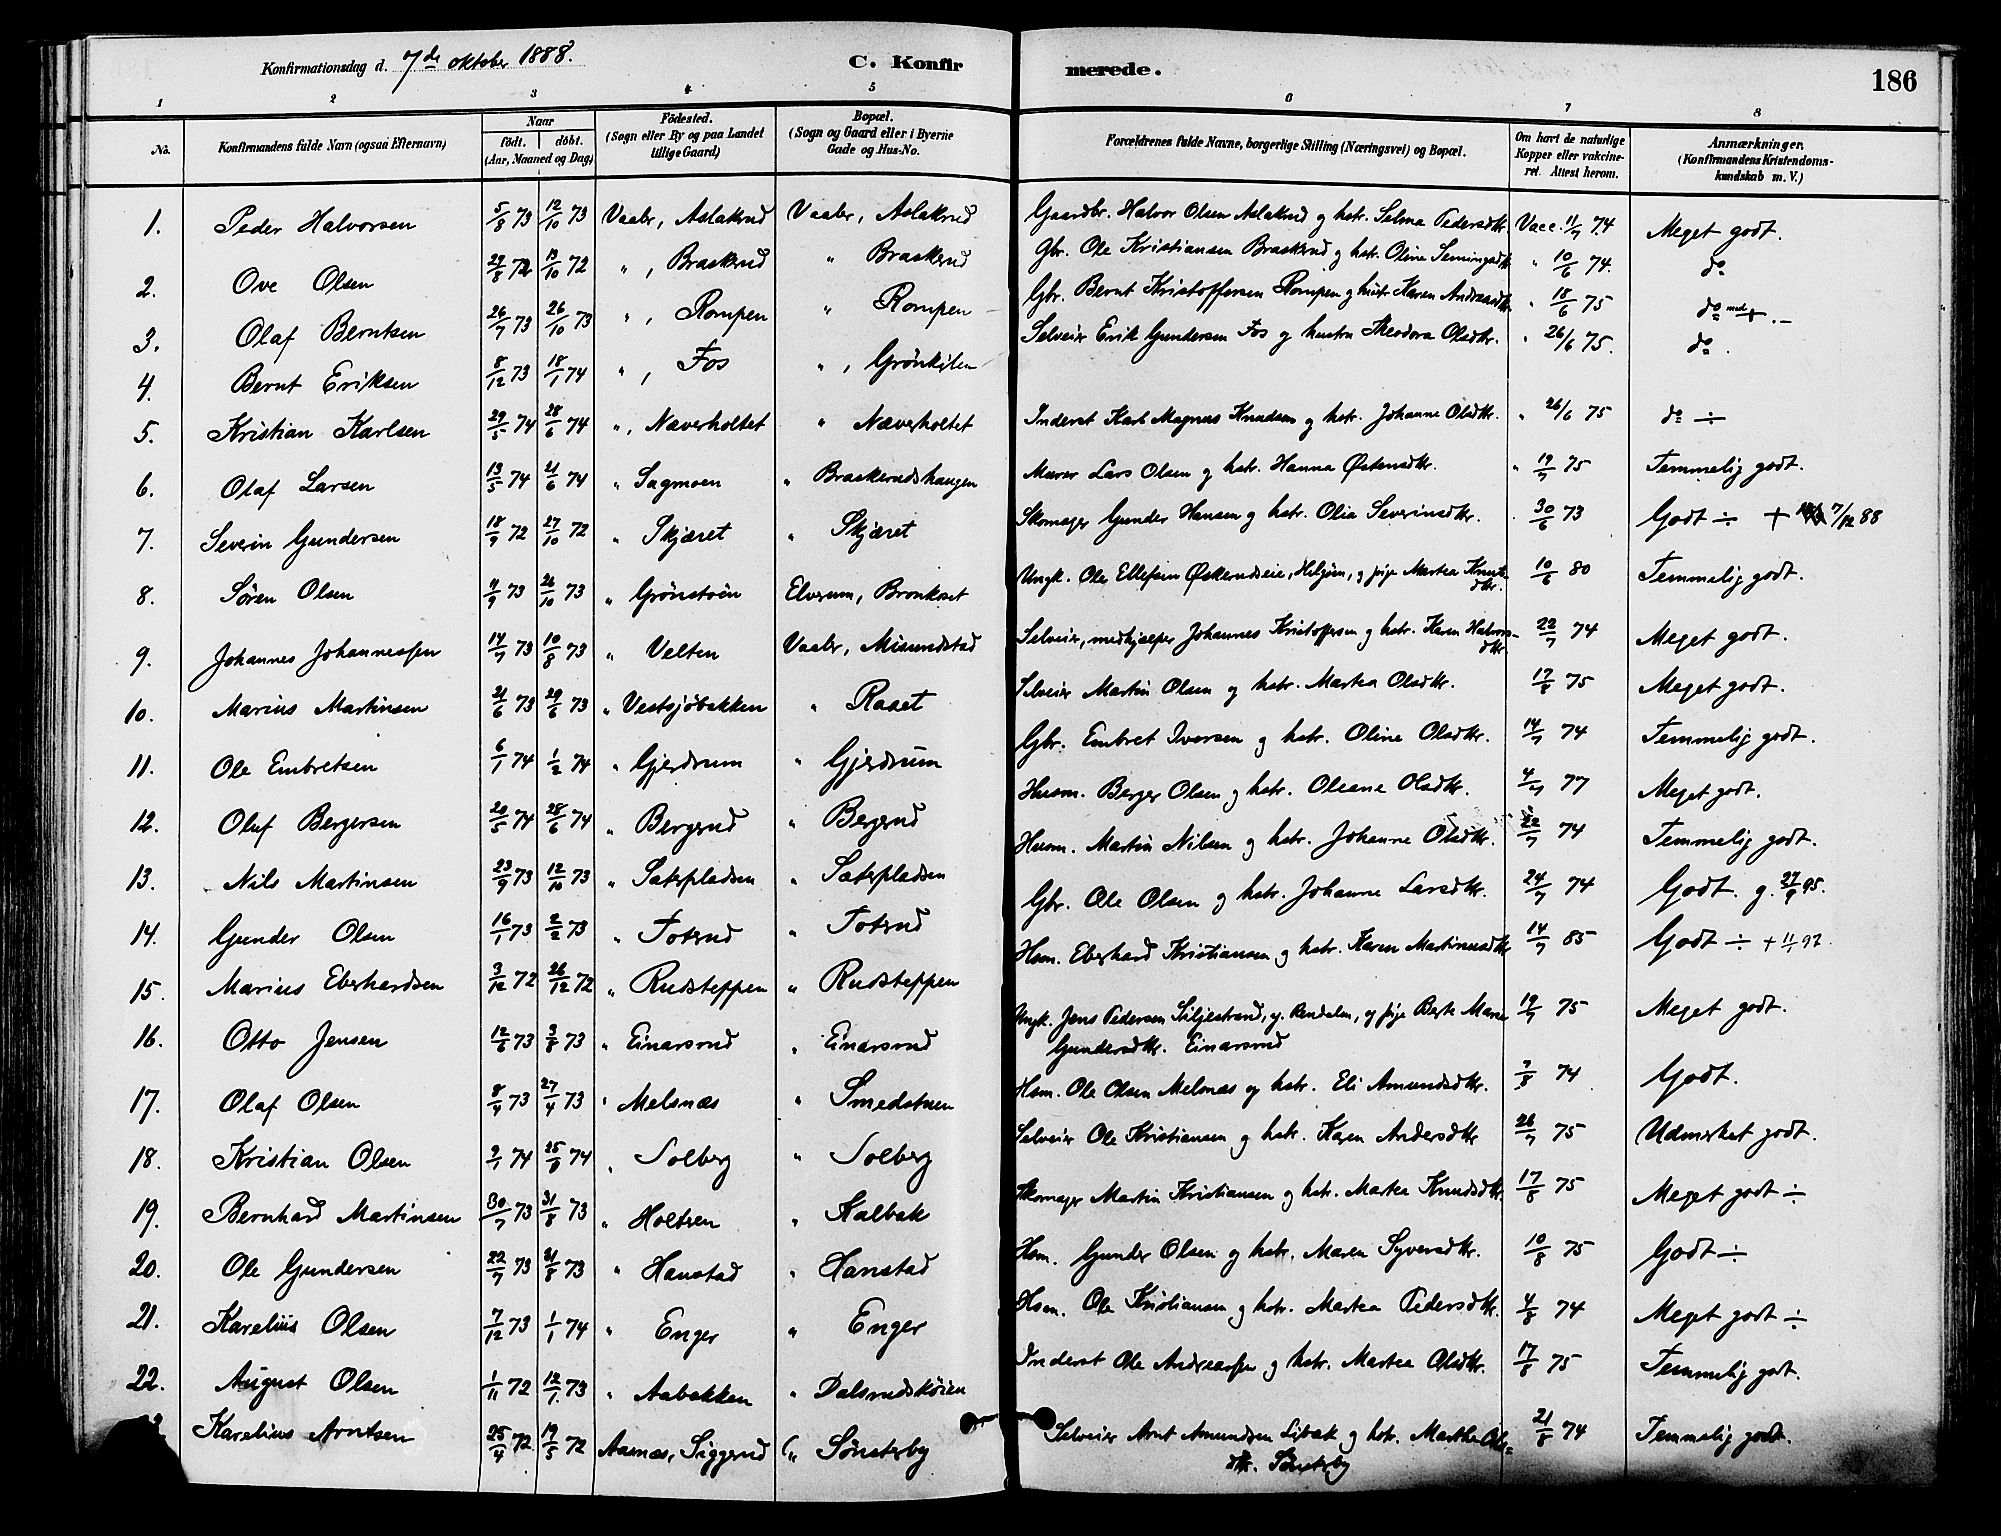 Konfirmationsdag d. 7de oktober 1888.
C. Konfirmerede.
186
1 2 3 4 5 6 7 8
No. Konfirmandens fulde Navn (ogsaa Efternavn) Naar födt. döbt. (Aar, Maaned og Dag) Födested. (Sogn eller By og paa Landet tillige Gaard) Bopæl. (Sogn og Gaard eller i Byerne Gade og Hus-No. Forældrenes fulde Navne, borgerlige Stilling (Næringsvei) og Bopæl. Om havt de naturlige Kopper eller vakcineret. Attest herom. Anmærkninger. (Konfirmandens Kristendomskundskab m. V.)
1. Peder Halvorsen 5/8 73 12/10 73 Vaaler, Aslakrud Vaaler, Aslakrud Gaardbr. Halvor Olsen Aslakrud og hstr. Selma Pedersdtr. Vacc. 11/7 74 Meget godt.
2. Ove Olsen 29/8 72 13/10 72 ", Braskerud " Braskerud Gbr. Ole Kristiansen Braskerud og hstr. Oline Semingsdtr. " 10/6 74. do
3. Olaf Berntsen 26/7 73 26/10 73 ", Rompen " Rompen Gbr. Bernt Kristoffersen Rompen og hustr. Karen Andreasdtr. " 18/6 75 do
4. Bernt Eriksen 8/12 73 18/1 74 ", Fos ", Grönkilen Selveier Erik Gundersen Fos og hustru Theodora Olsdtr. " 26/6 75. do.
5. Kristian Karlsen 29/5 74 28/6 74 ", Næverholtet " Næverholtet Inderst Karl Magnus Knudsen og hstr. Johanne Olsdtr. " 26/6 75 do ÷
6. Olaf Larsen 13/5 74 21/6 74 " Sagmoen " Braskerudshaugen Murer Lars Olsen og hstr. Hanna Østensdtr. " 19/7 75 Temmelig godt.
7. Severin Gundersen 18/9 72 27/10 72 " Skjæret " Skjæret Skomager Gunder Hansen og hstr. Olia Severinsdtr. 30/6 73 Godt ÷ + 7/12 88
8. Søren Olsen 11/9 73 26/10 73 " Grönstöen Elverum, Bronkset Ungk. Ole Ellefsen Øskerudseie, Heljøen, og pige Martea Knutsdtr. 10/6 80 Temmelig godt.
9. Johannes Johannessen 14/7 73 10/8 73 " Velten Vaaler, Misundstad Selveier, medhjælper Johannes Kristoffersen og hstr. Karen Halvorsdtr. 22/7 74 Meget godt.
10. Marius Martinsen 21/6 73 29/6 73 " Vestsjöbakken " Raaet Selveier Martin Olsen og hstr. Martea Olsdtr. 17/8 75 Meget godt.
11. Ole Embretsen 6/1 74 1/2 74 " Gjerdrum " Gjerdrum Gbr. Embret Iversen og hstr. Oline Olsdtr. 14/7 74 Temmelig godt.
12. Oluf Bergersen 20/5 74 28/6 74 " Bergerud " Bergerud Husm. Berger Olsen og hstr. Oleane Olsdtr. 4/7 77 Meget godt.
13. Nils Martinsen 23/9 73 12/10 73 " Saterpladsen " Saterpladsen Husm. Martin Nilsen og hstr. Johanne Olsdtr. 22/7 74 Temmelig godt.
14. Gunder Olsen 16/1 73 2/2 73 " Toterud " Toterud Gbr. Ole Olsen og hstr. Johanne Larsdtr. 24/7 74 Godt. g. 27/9 95.
15. Marius Eberhardsen 3/12 72 26/12 72 " Rudsteppen " Rudsteppen Hsm. Eberhard Kristiansen og hstr. Karen Martinusdtr 14/7 85 Godt ÷ + 11/ 97.
16. Otto Jensen 12/6 73 3/8 73 " Einarsrud " Einarsrud Ungk. Jens Pedersen Siljestrand, y. Rendalen, og pige Berte Marie Gundersdtr. Einarsrud 19/7 75 Meget godt.
17. Olaf Olsen 8/4 73 27/4 73 " Melsnæs " Smedstuen Hsm. Ole Olsen Melsnæs og hstr. Eli Amundsdtr. 7/8 74 Godt.
18. Kristian Olsen 9/1 74 25/ 74 " Solberg " Solberg Selveier Ole Kristiansen og hstr. Karen Andersdtr 26/7 75 Udmerket godt.
19. Bernhard Martinsen 30/7 73 31/8 73 " Holtsen " Kalbak Skomager Martin Kristiansen og hstr. Martea Knudsdtr. 17/8 75 Meget godt ÷
20. Ole Gundersen 22/7 73 31/8 73 " Hanstad " Hanstad Hsm. Gunder Olsen og hstr. Maren Syversdtr. 10/8 75 Godt ÷
21. Karelius Olsen 7/12 73 1/1 74 " Enger " Enger Hsm. Ole Kristiansen og hstr. Martea Pedersdtr. 4/8 74 Meget godt ÷
22. August Olsen 1/11 72 12/1. 73 " Aabakken " Dalsrudskøien Inderst Ole Andreassen og hstr. Martea Olsdtr. 17/8 75 Temmelig godt.
Karelius Arntsen 25/4 72 19/5 72 Aasnæs, Siggerud " Sönsterby Selveier Arnt Amundsen Libak og hstr. Marthe Olsdtr. Sönsterby 21/8 74 Temmelig godt.